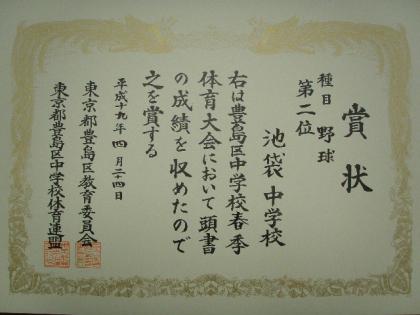 賞状
種目 野球
第二位
池袋中学校
右は豊島区中学校春季
体育大会において頭書
の成績を収めたので
之を賞する
平成十九年四月二十四日
東京都豊島区教育委員会
東京都豊島区中学校体育連盟